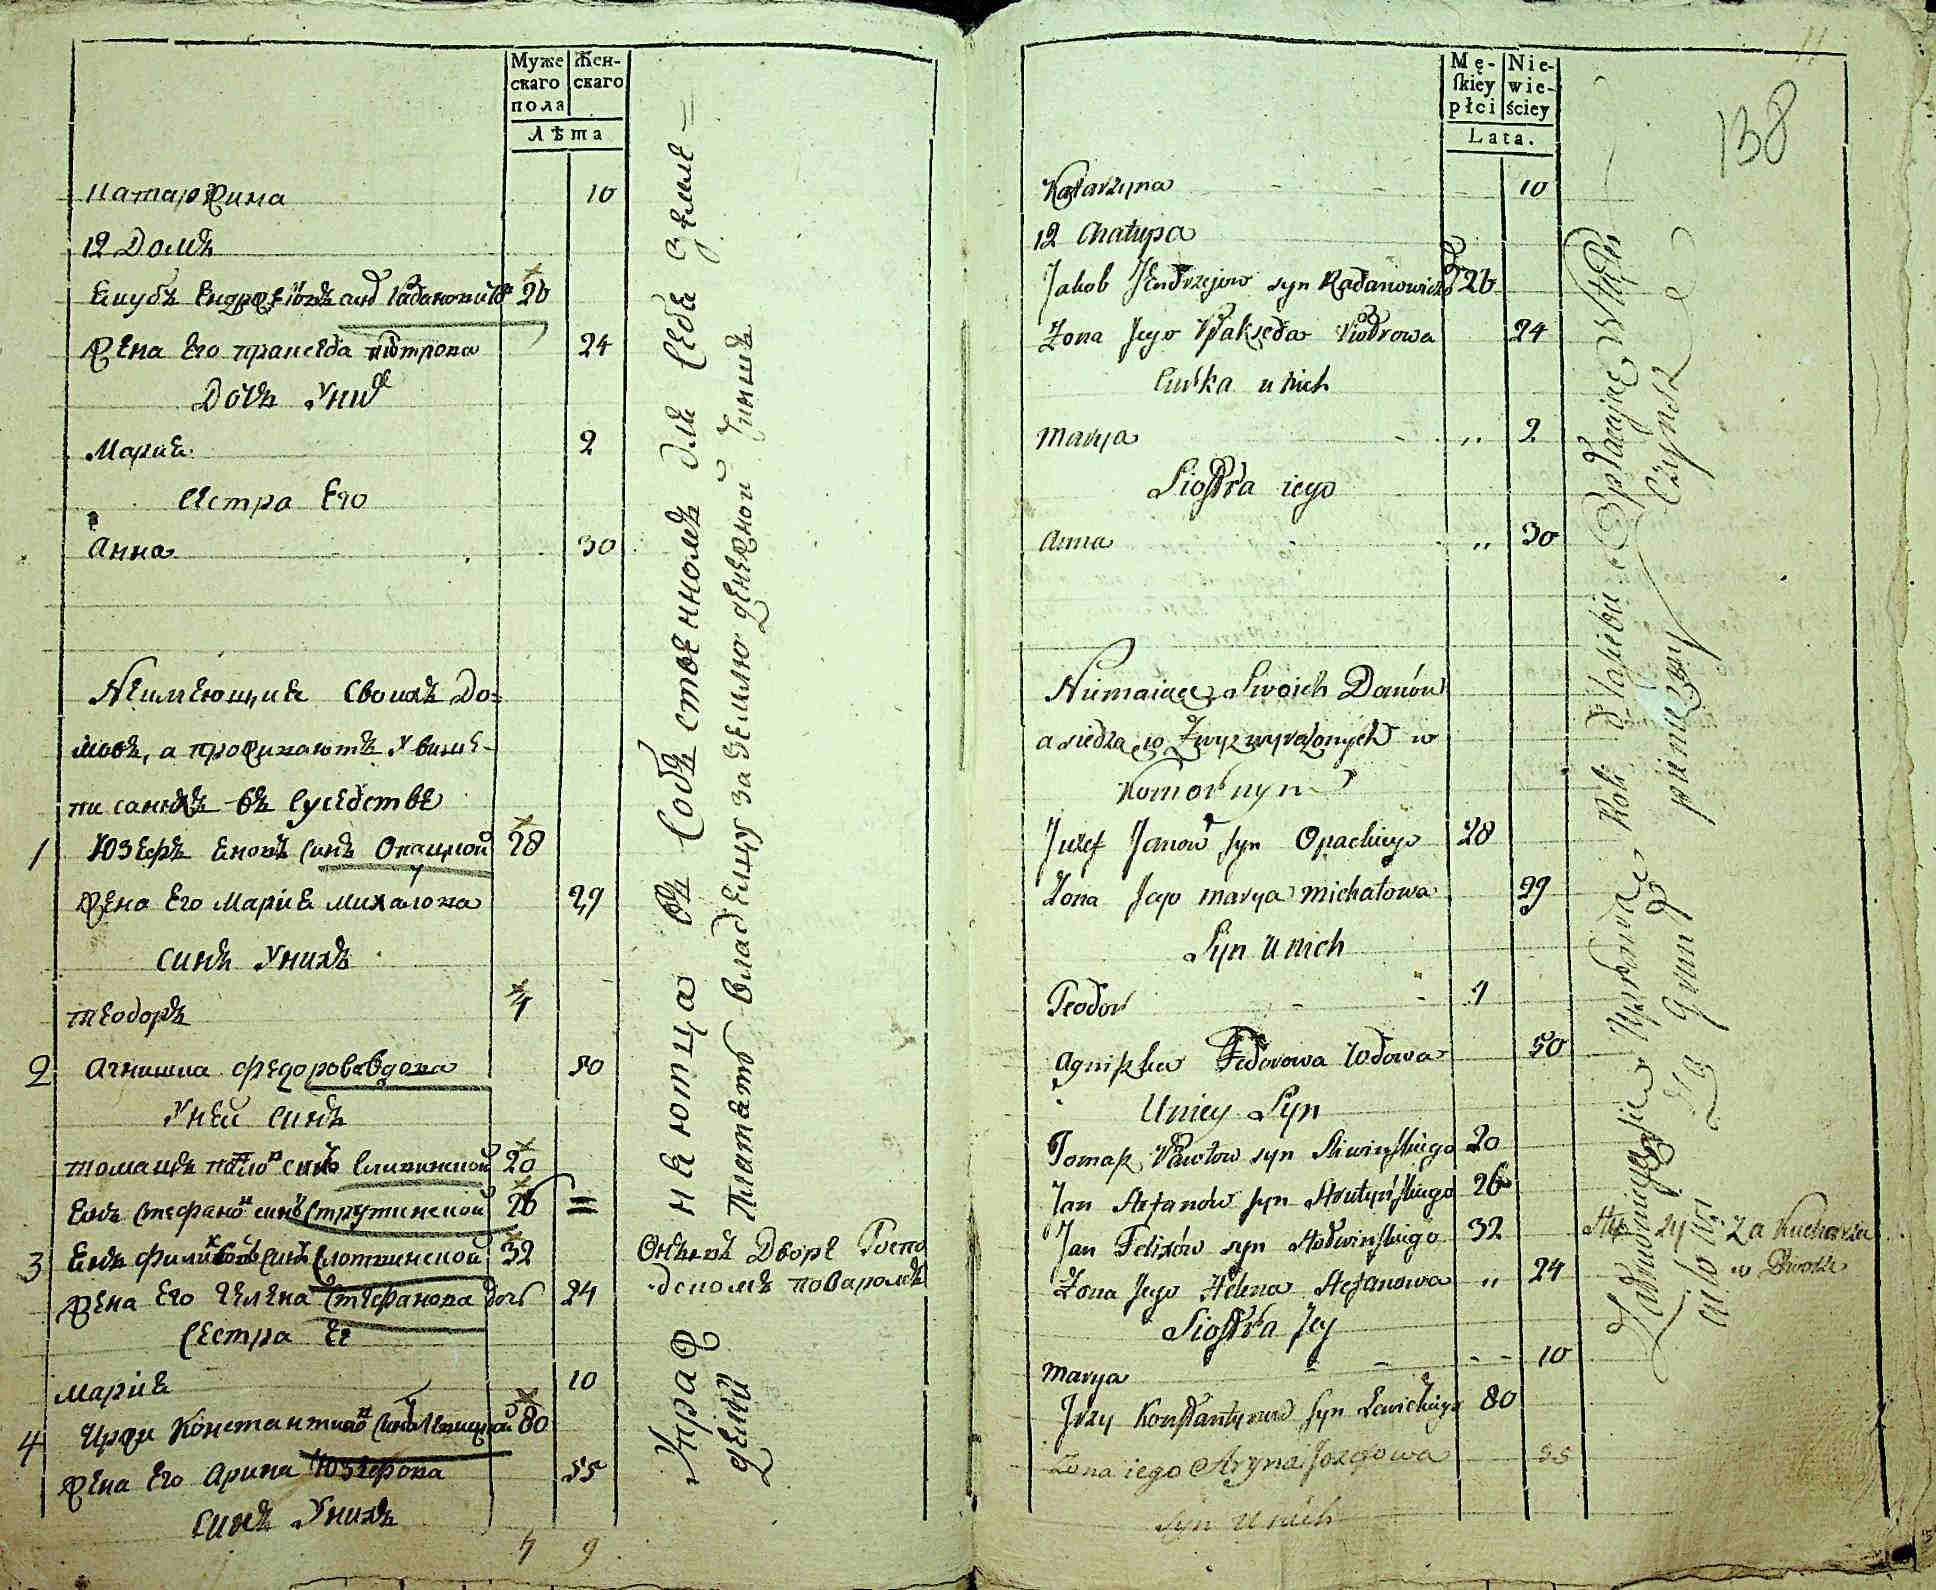 Муже
скаго
пола
Жен-
скаго
Лѣта
Катаржина 10
12 Домъ
Якубъ Ендрѣевъ синъ Радановичъ 26
Жена Его Пракседа Піотрова 24
Дочъ Уних
Марія 2
Сестра Его
Анна 30
Неимеющия своихъ До=
мовъ, а проживаютъ У више-
писанихъ въ Суседстве
1 Юзефъ Яновъ Синъ Опацкой 28
Жена Его Марія Михалова 29
Синъ Унихъ
Теодоръ 4
2 Агнишка Федорова вдова 50
Уней Синъ
Томашъ Павло синъ Сливинской 20
Янъ Стефано синъ Струтинской 26
3 Янъ Филиксовъ Синъ Слотвинской 32
Жена Его Гелена Стефанова дочъ 24
Сестра Ее
Марія 10
4 Иржи Константино Синъ Левицкой 80
Жена Его Арина Юзефова 55
Синъ Унихъ
4 9
Упражняютца въ собственномъ для Себя Земле-
делии Платятъ владелцу за землю денежной Чиншъ
Онъ въ Дворе Госпо
дскомъ поваромъ
11
138
Mę-
ſkiey
płci
Nie-
wie-
ściey
Lata.
Katarzyna 10
12 Chałupa
Jakob Jendrzejow syn Radanowicz 26
Zona Jego Praxeda Piotrowa 24
Curka u nich
Marya 2
Siostra iego
Anna 30
Niemaiące Swoich Domów
a siedzą w Zwyz wyrażonych w
Komornym
Juzef Janow syn Opackiego 28
Zona Jego Marya Michałowa 29
Syn u nich
Teodor 4
Agniszka Fedorowa Wdowa 50
U niey Syn
Tomasz Pawłow syn Sliwinskiego 20
Jan Stefanów syn Strutyńskiego 26
Jan Felixów syn Słotwinskiego 32
Zona Jego Helena Stefanowa 24
Siostra Jey
Marya 10
Jrzy Konstantynow syn Lewickiego 80
Zona iego Aryna Jozefowa 55
Syn u nich
Zatrudniaią się Uprawą Roli dla siebie Opłacaią
Za Grunt
pieniezny Czynsz
Słuzy za Kucharza
w Dworze